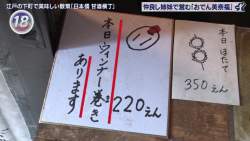 江戸の下町で美味しい散策［日本橋 甘酒横丁］
18
仲良し姉妹で営む「おでん美奈福」
本日ウィンナー巻き
あります
220えん
本日ほたて
350えん